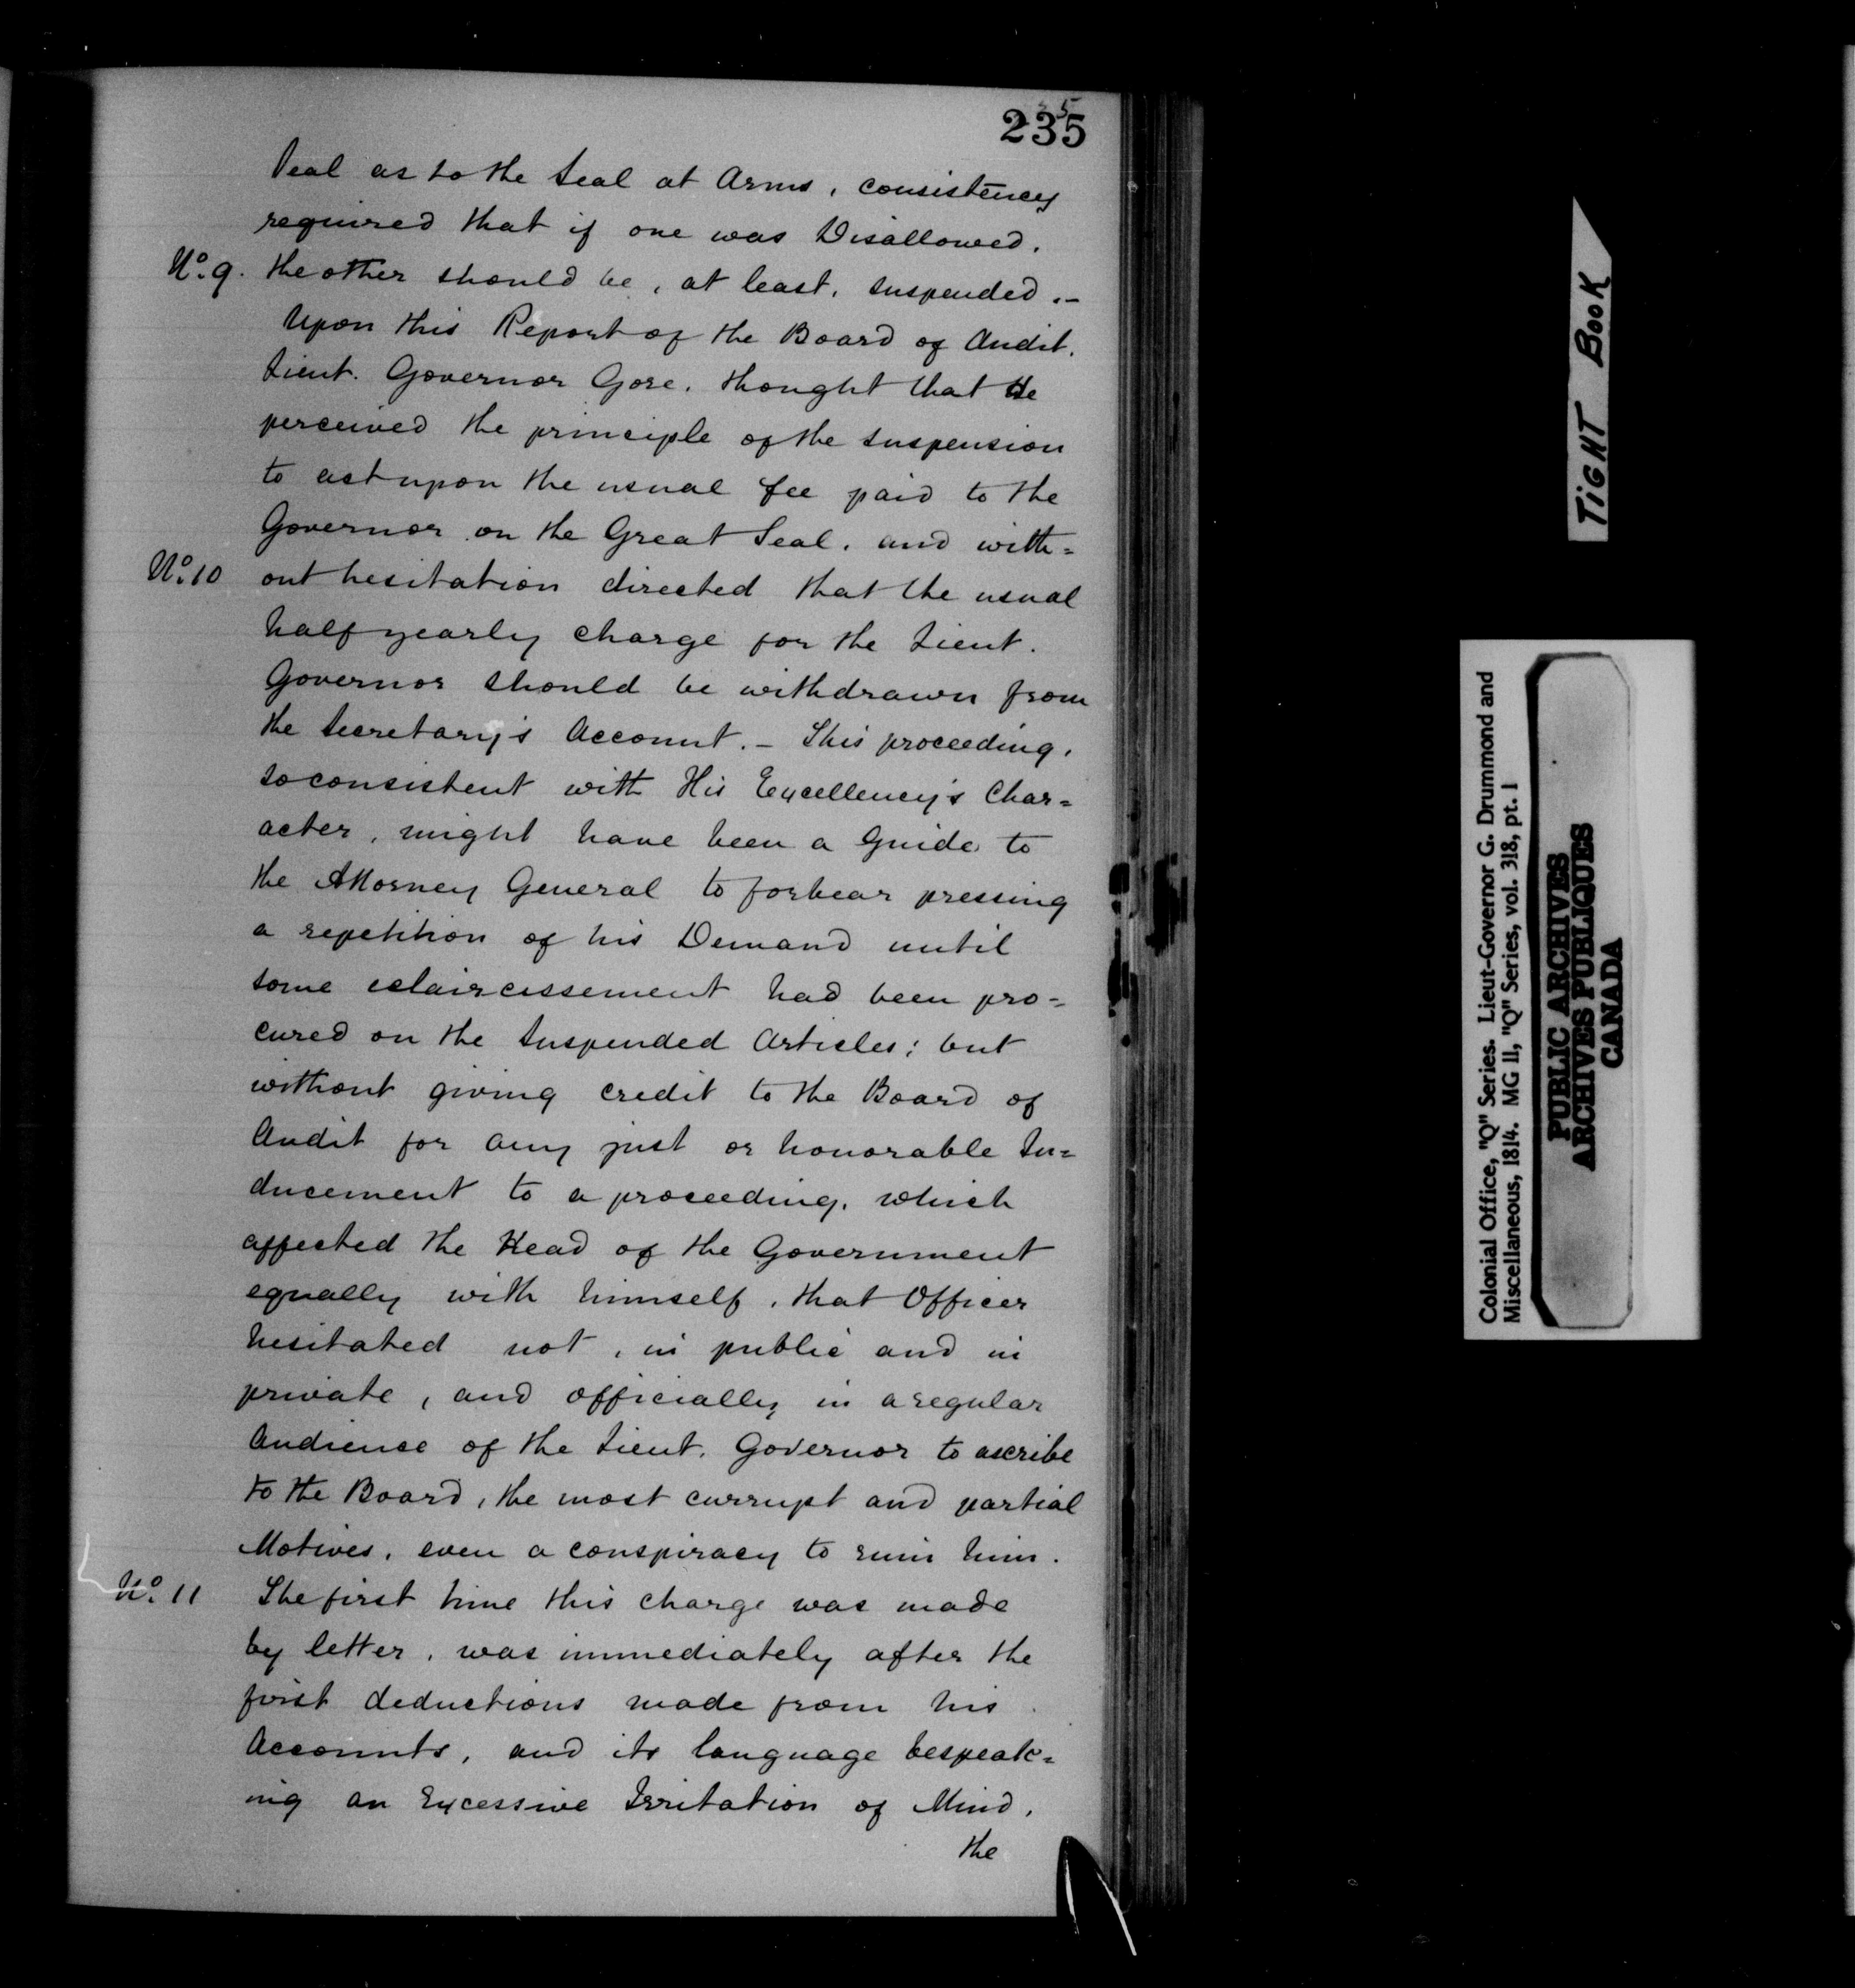 235
5
Seal as to the Seal at Arms, consistency
required that if one was Disallowed,
No. 9. the other should be, at least, suspended.-
Upon this Report of the Board of Audit,
Lieut. Governor Gore, thought that He
perceived the principle of the suspension
to act upon the usual fee paid to the
Governor on the Great Seal, and with=
No. 10 out hesitation directed that the usual
half yearly charge for the Lieut.
Governor should be withdrawn from
the Secretary's Account. - This proceeding,
so consistent with His Excellency's Char=
acter, might have been a Guide to
the Attorney General to forbear pressing
a repetition of his Demand until
some eclaircissement had been pro=
cured on the Suspended Articles; but
without giving credit to the Board of
Audit for any just or honorable In=
ducement to a proceeding, which
affected the Head of the Government
equally with himself, that Officer
hesitated not, in public and in
private, and officially in a regular
Audience of the Lieut. Governor to ascribe
to the Board, the most currupt and partial
Motives, even a conspiracy to ruin him.
No. 11 The first time this charge was made
by letter, was immediately after the
first deductions made from his
Accounts, and its language bespeak=
ing an Excessive Irritation of Mind,
the
TIGHT BOOK
Colonial Office, "Q" Series. Lieut-Governor G. Drummond and
Miscellaneous, 1814. MG 11, "Q" Series, vol. 318, pt. 1
PUBLIC ARCHIVES
ARCHIVES PUBLIQUES
CANADA